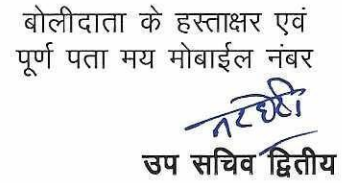 बोलीदाता के हस्ताक्षर एवं
पूर्ण पता मय मोबाईल नंबर
उप सचिव द्वितीय